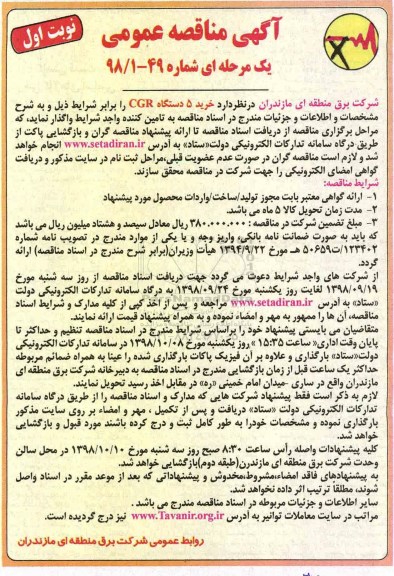 نوبت اول
آگهی مناقصه عمومی
یک مرحله ای شماره ۴۹-۹۸/۱
شرکت برق منطقه ای مازندران درنظردارد خرید ۵ دستگاه CGR را برابر شرایط ذیل و به شرح
مشخصات و اطلاعات و جزئیات مندرج در اسناد مناقصه به تامین کننده واجد شرایط واگذار نماید، که
مراحل برگزاری مناقصه از دریافت اسناد مناقصه تا ارائه پیشنهاد مناقصه گران و بازگشایی پاکت از
طریق درگاه سامانه تدارکات الکترونیکی دولت«ستاد» به آدرس www.setadiran.ir انجام خواهد
شد و لازم است مناقصه گران در صورت عدم عضویت قبلی،مراحل ثبت نام در سایت مذکور و دریافت
گواهی امضای الکترونیکی را جهت شرکت در مناقصه محقق سازند.
شرایط مناقصه:
۱- ارائه گواهی معتبر بابت مجوز تولید/ساخت/واردات محصول مورد پیشنهاد
۲- مدت زمان تحویل کالا ۵ ماه می باشد.
۳- مبلغ تضمین شرکت در مناقصه : ۳۸۰.۰۰۰.۰۰۰ ریال معادل سیصد و هشتاد میلیون ریال می باشد
که باید به صورت ضمانت نامه بانکی، واریز وجه و یا یکی از موارد مندرج در تصویب نامه شماره
۱۲۳۴۰۲/ت۵۰۶۵۹ هـ مورخ ۱۳۹۴/۹/۲۲ هیأت وزیران(برابر شرح مندرج در اسناد مناقصه) ارائه
گردد.
از شرکت های واجد شرایط دعوت می گردد جهت دریافت اسناد مناقصه از روز سه شنبه مورخ
۱۳۹۸/۰۹/۱۹ لغایت روز یکشنبه مورخ ۱۳۹۸/۰۹/۲۴ به درگاه سامانه تدارکات الکترونیکی دولت
«ستاد» به آدرس www.setadiran.ir مراجعه و پس از اخذ کپی از کلیه مدارک و شرایط اسناد
مناقصه، آن ها را ممهور به مهر و امضاء نموده و به همراه پیشنهاد قیمت ارائه نمایند.
متقاضیان می بایستی پیشنهاد خود را براساس شرایط مندرج در اسناد مناقصه تنظیم و حداکثر تا
پایان وقت اداری« ساعت ۱۵:۳۵ »روز یکشنبه مورخ ۱۳۹۸/۱۰/۰۸ در سامانه تدارکات الکترونیکی
دولت«ستاد» بارگذاری و علاوه بر آن فیزیک پاکات بارگذاری شده را عینا به همراه ضمائم مربوطه
حداکثر یک ساعت قبل از زمان بازگشایی مندرج در اسناد مناقصه به دبیرخانه شرکت برق منطقه ای
مازندران واقع در ساری -میدان امام خمینی «ره» در مقابل اخذ رسید تحویل نمایند.
لازم به ذکر است فقط پیشنهاد شرکت هایی که مدارک و اسناد مناقصه را از طریق درگاه سامانه
تدارکات الکترونیکی دولت «ستاد» دریافت و پس از تکمیل ، مهر و امضاء بر روی سایت مذکور
بارگذاری نموده و مشخصات خودرا به طور کامل ثبت و درج کرده باشند مورد قبول و بازگشایی
خواهد شد.
کلیه پیشنهادات واصله رأس ساعت ۸:۳۰ صبح روز سه شنبه مورخ ۱۳۹۸/۱۰/۱۰ در محل سالن
وحدت شرکت برق منطقه ای مازندرن(طبقه دوم)بازگشایی خواهد شد.
به پیشنهادهای فاقد امضاء،مشروط،مخدوش و پیشنهاداتی که بعد از موعد مقرر در اسناد واصل
شوند، مطلقا ترتیب اثر داده نخواهد شد.
سایر اطلاعات و جزئیات مربوطه در اسناد مناقصه مندرج می باشد .
مراتب در سایت معاملات توانیر به آدرس www.Tavanir.org.ir نیز درج گردیده است.
روابط عمومی شرکت برق منطقه ای مازندران